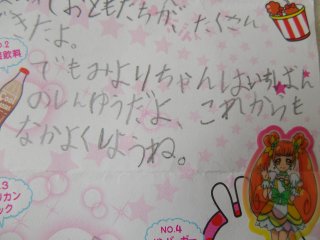 おともだちが、たくさん
できたよ。
NO.2
飲料
でもみよりちゃんはいちばん
のしんゆうだよ、これからも
なかよくしようね。
NO.3
リカン
ック
NO.4